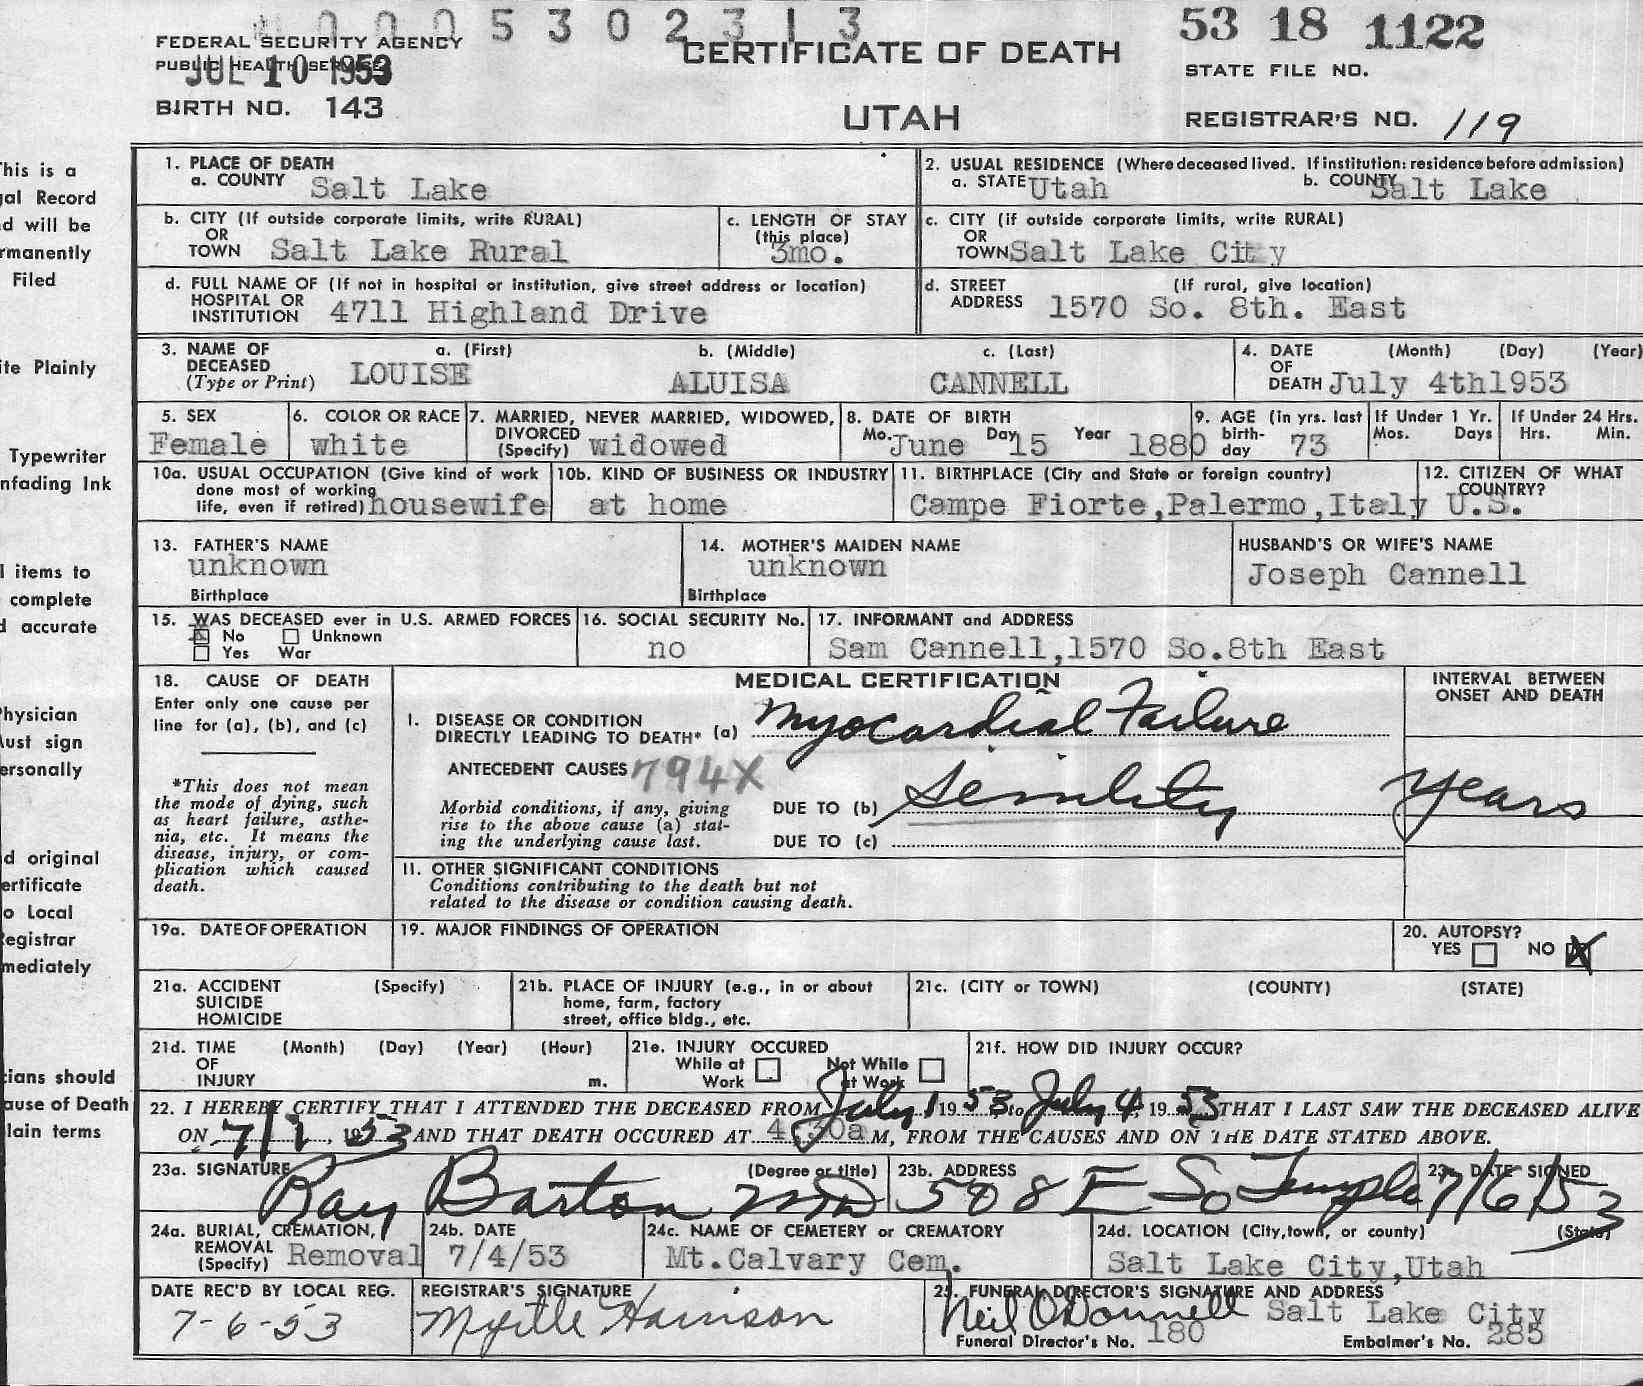 0 0 0 5 3 0 2 3 1 3
53 18 1122
FEDERAL SECURITY AGENCY
PUBLIC HEALTH SERVICE
JUL 10 1953
CERTIFICATE OF DEATH
STATE FILE NO.
BIRTH NO. 143
UTAH
REGISTRAR'S NO. 119
This is a
gal Record
d will be
rmanently
Filed
ite Plainly
Typewriter
nfading Ink
l items to
complete
d accurate
Physician
Must sign
ersonally
d original
ertificate
o Local
Registrar
mediately
cians should
ause of Death
lain terms
1. PLACE OF DEATH
a. COUNTY Salt Lake
2. USUAL RESIDENCE (Where deceased lived. If institution: residence before admission)
a. STATE Utah b. COUNTY Salt Lake
b. CITY (If outside corporate limits, write RURAL)
OR
TOWN Salt Lake Rural
c. LENGTH OF STAY
(this place)
3mo.
c. CITY (if outside corporate limits, write RURAL)
OR
TOWN Salt Lake City
d. FULL NAME OF (If not in hospital or institution, give street address or location)
HOSPITAL OR
INSTITUTION 4711 Highland Drive
d. STREET (If rural, give location)
ADDRESS 1570 So. 8th. East
3. NAME OF DECEASED (Type or Print)
a. (First) b. (Middle) c. (Last)
LOUISE ALUISA CANNELL
4. DATE OF DEATH (Month) (Day) (Year)
July 4th1953
5. SEX
Female
6. COLOR OR RACE
white
7. MARRIED, NEVER MARRIED, WIDOWED,
DIVORCED
(Specify) widowed
8. DATE OF BIRTH
Mo. June Day 15 Year 1880
9. AGE (in yrs. last
birth-
day 73
If Under 1 Yr.
Mos. Days
If Under 24 Hrs.
Hrs. Min.
10a. USUAL OCCUPATION (Give kind of work
done most of working
life, even if retired) housewife
10b. KIND OF BUSINESS OR INDUSTRY
at home
11. BIRTHPLACE (City and State or foreign country)
Campe Fiorte,Palermo,Italy
12. CITIZEN OF WHAT
COUNTRY?
U.S.
13. FATHER'S NAME
unknown
Birthplace
14. MOTHER'S MAIDEN NAME
unknown
Birthplace
HUSBAND'S OR WIFE'S NAME
Joseph Cannell
15. WAS DECEASED ever in U.S. ARMED FORCES
No Unknown
Yes War
16. SOCIAL SECURITY No.
no
17. INFORMANT and ADDRESS
Sam Cannell,1570 So.8th East
18. CAUSE OF DEATH
Enter only one cause per
line for (a), (b), and (c)
*This does not mean
the mode of dying, such
as heart failure, asthe-
nia, etc. It means the
disease, injury, or com-
plication which caused
death.
MEDICAL CERTIFICATION
INTERVAL BETWEEN
ONSET AND DEATH
I. DISEASE OR CONDITION
DIRECTLY LEADING TO DEATH* (a) Myocardial Failure
ANTECEDENT CAUSES 794X
Morbid conditions, if any, giving
rise to the above cause (a) stat-
ing the underlying cause last.
DUE TO (b) Senility years
DUE TO (c)
II. OTHER SIGNIFICANT CONDITIONS
Conditions contributing to the death but not
related to the disease or condition causing death.
19a. DATE OF OPERATION
19. MAJOR FINDINGS OF OPERATION
20. AUTOPSY?
YES NO X
21a. ACCIDENT (Specify)
SUICIDE
HOMICIDE
21b. PLACE OF INJURY (e.g., in or about
home, farm, factory
street, office bldg., etc.
21c. (CITY or TOWN) (COUNTY) (STATE)
21d. TIME (Month) (Day) (Year) (Hour)
OF
INJURY m.
21e. INJURY OCCURED
While at Work Not While at Work
21f. HOW DID INJURY OCCUR?
22. I HEREBY CERTIFY THAT I ATTENDED THE DECEASED FROM July 1 1953 to July 4, 1953 THAT I LAST SAW THE DECEASED ALIVE
ON 7/1, 1953 AND THAT DEATH OCCURED AT 4:30a M, FROM THE CAUSES AND ON THE DATE STATED ABOVE.
23a. SIGNATURE (Degree or title)
Ray Barton MD
23b. ADDRESS
508 E So Temple
23c. DATE SIGNED
7/6/53
24a. BURIAL, CREMATION,
REMOVAL
(Specify) Removal
24b. DATE
7/4/53
24c. NAME OF CEMETERY OR CREMATORY
Mt.Calvary Cem.
24d. LOCATION (City,town, or county) (State)
Salt Lake City,Utah
DATE REC'D BY LOCAL REG.
7-6-53
REGISTRAR'S SIGNATURE
Myrtle Harrison
25. FUNERAL DIRECTOR'S SIGNATURE AND ADDRESS
Neil O'Donnell Salt Lake City
Funeral Director's No. 180 Embalmer's No. 285